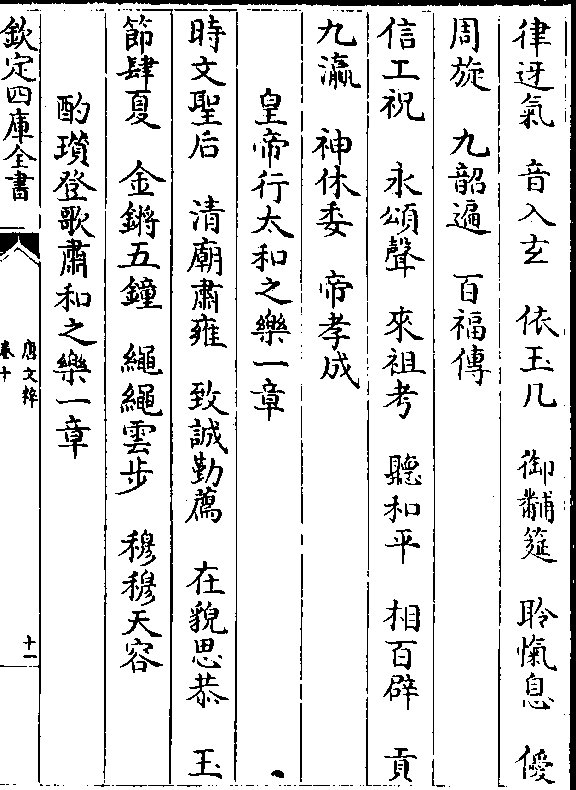 律迓氣　音入玄　依玉几　御黼筵　聆愾息　僾
周旋　九韶遍　百福傳
信工祝　永頌聲　來祖考　聽和平　相百辟　貢
九瀛　神休委　帝孝成
皇帝行太和之樂一章
時文聖后　清廟肅雍　致誠勤薦　在貌思恭　玉
節肆夏　金鏘五鐘　繩繩雲步　穆穆天容
酌瓚登歌肅和之樂一章
欽定四庫全書
唐文粹
卷十
十一